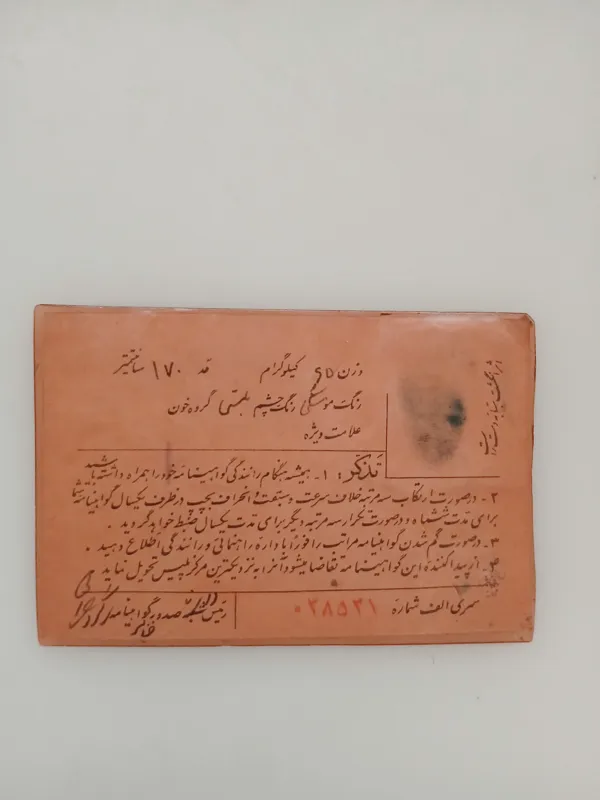 وزن ۶۵ کیلوگرام قد ۱۷۰ سانتیمتر
رنگ مو مشکی رنگ چشم گروه خون
علامت ویژه
اثر انگشت سبابه دست راست
تذکر: ۱- همیشه هنگام رانندگی گواهینامه خود را همراه داشته باشید
۲- در صورت ارتکاب سه مرتبه خلاف سرعت و سبقت و انحراف بچپ در ظرف یکسال گواهینامه شما
برای مدت ششماه و در صورت تکرار سه مرتبه دیگر برای مدت یکسال ضبط خواهد گردید .
۳- در صورت گم شدن گواهینامه مراتب را فوراً باداره راهنمائی و رانندگی اطلاع دهید .
۴- از پیدا کننده این گواهینامه تقاضا میشود آنرا به نزدیکترین مرکز پلیس تحویل نماید
سری الف شماره ۰۳۸۵۳۱
رئیس صدور گواهینامه